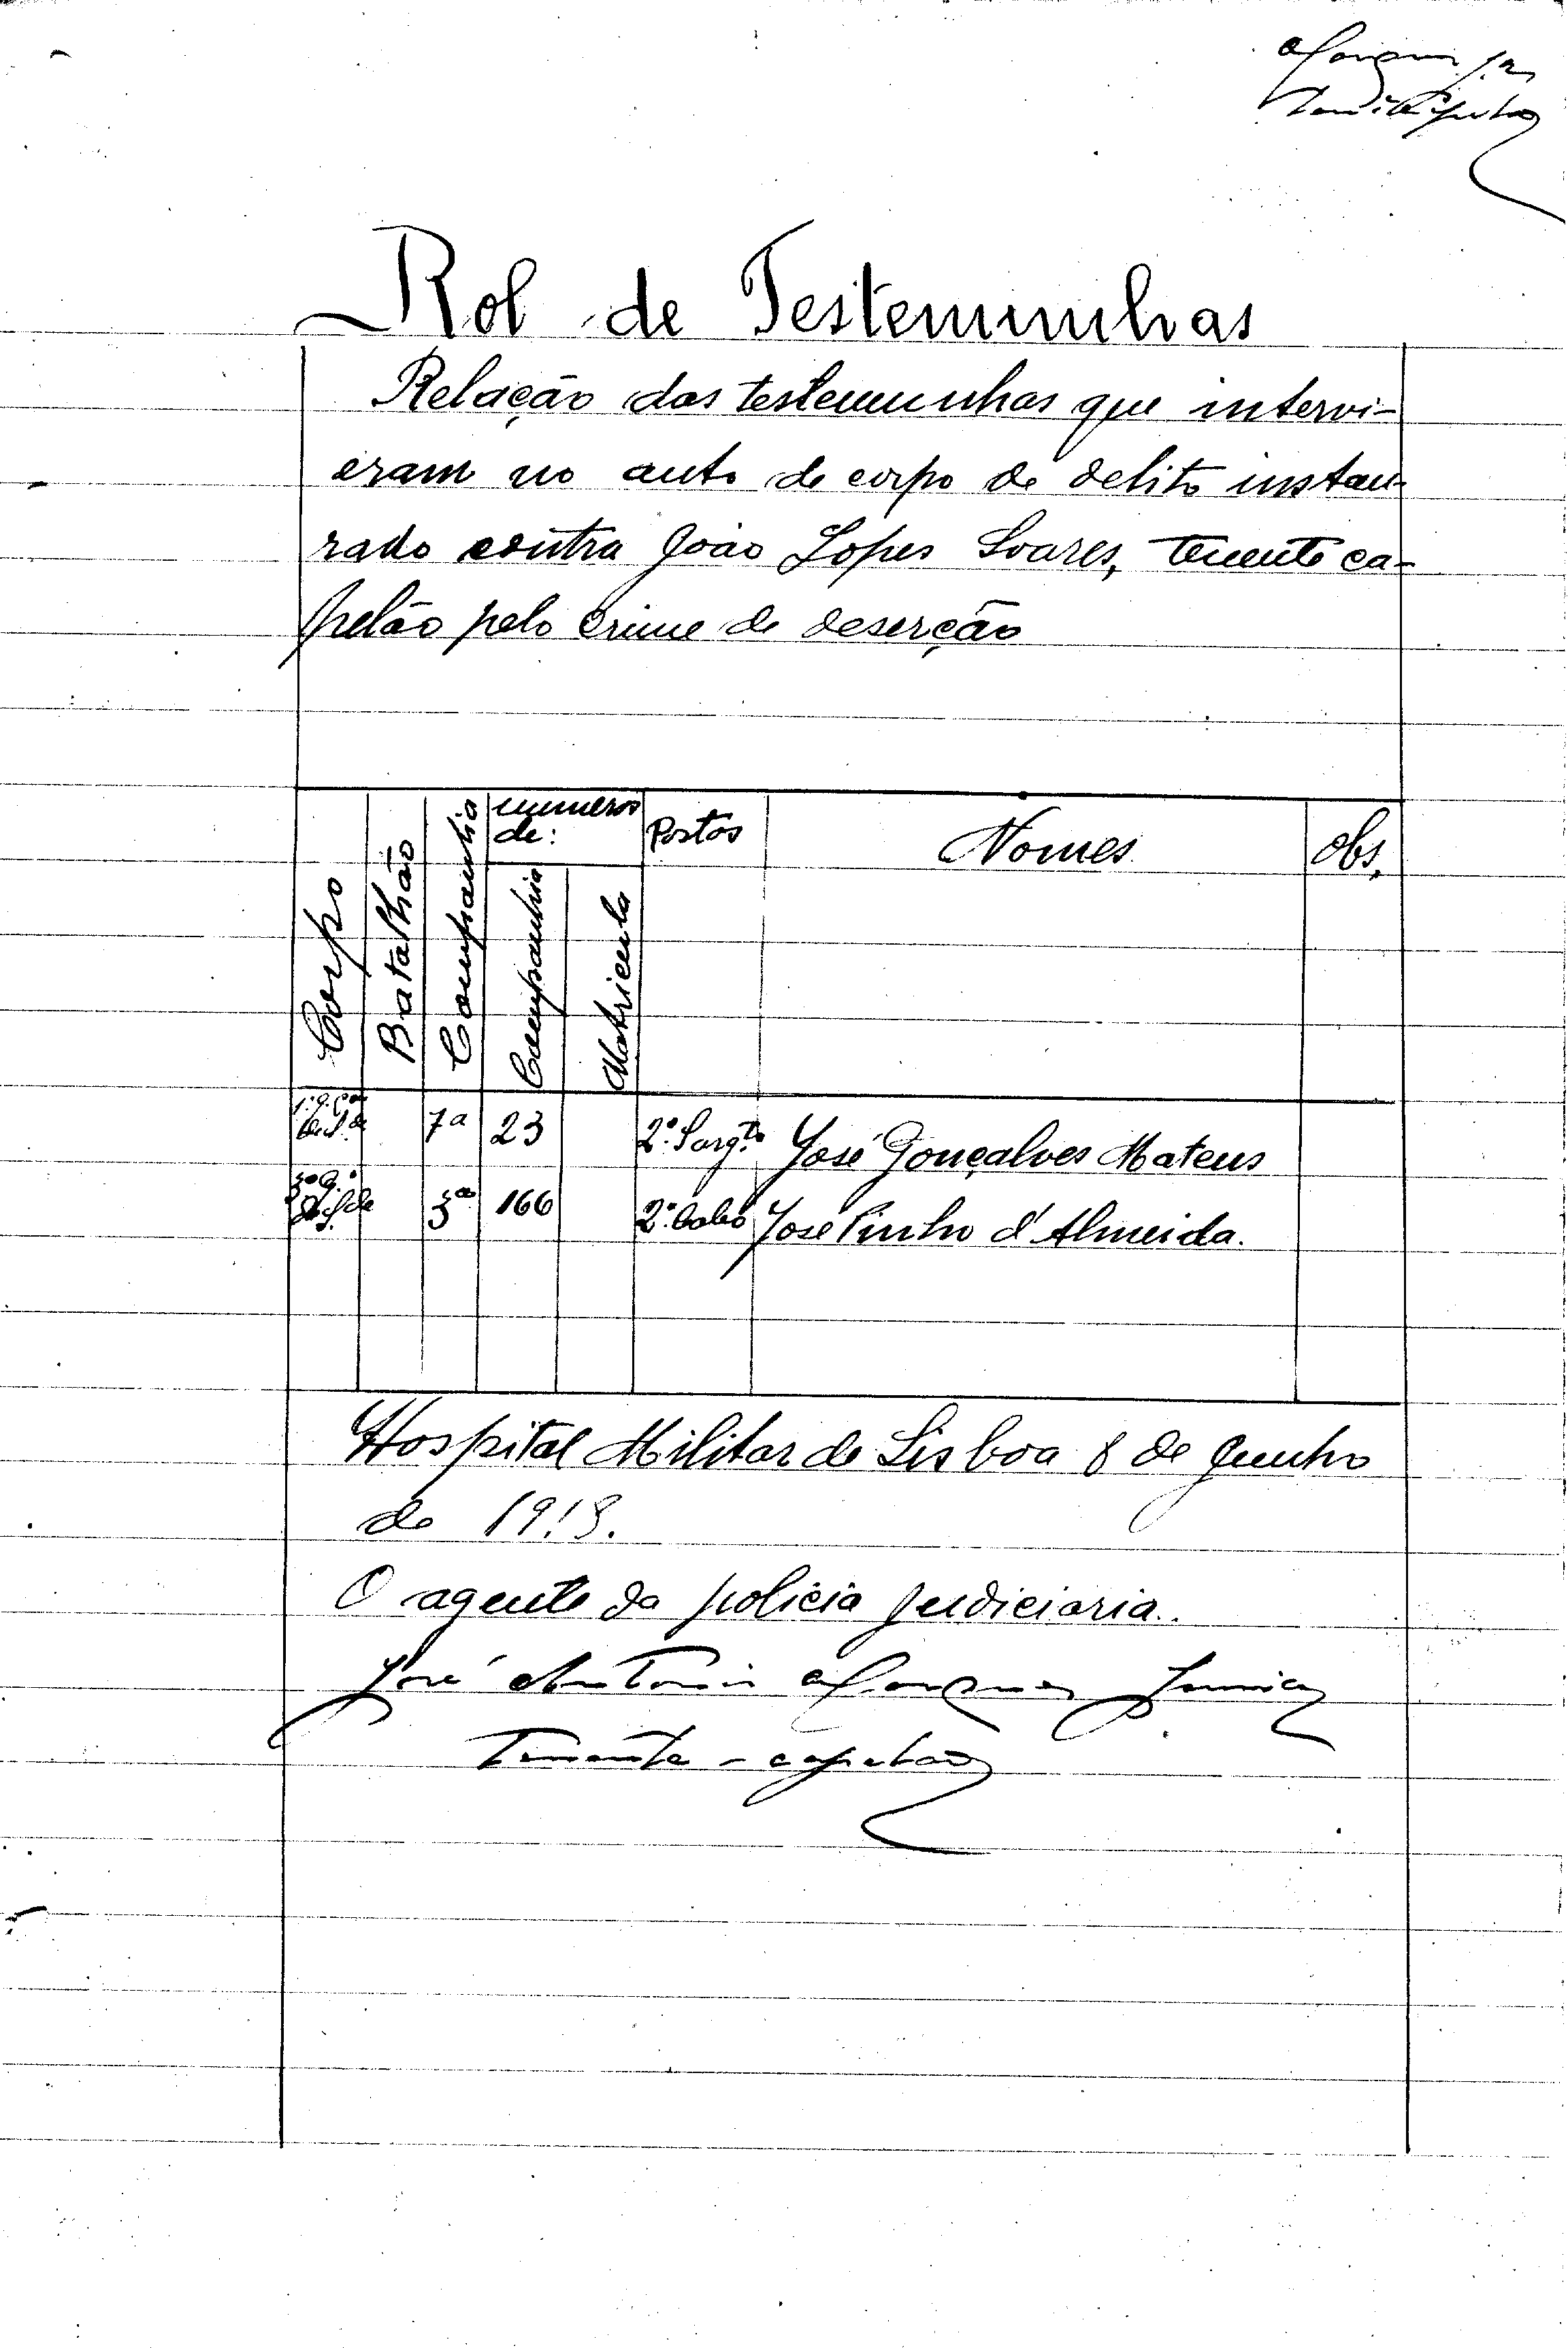 Rol de Testemunhas
Relação das testemunhas que intervi-
eram no auto de corpo de delito instau-
rado contra João Lopes Soares, tenente ca-
pelão pelo crime de deserção
Corpo Batalhão Companhia numeros de: Companhia Matricula Postos Nomes Obs.
7ª 23 2º Sargtº José Gonçalves Mateus
3ª 166 2º Cabo José Pinho d'Almeida.
Hospital Militar de Lisboa 8 de Junho
de 1918.
O agente da policia judiciaria.
José Antonio Marques Junior
Tenente-capelão